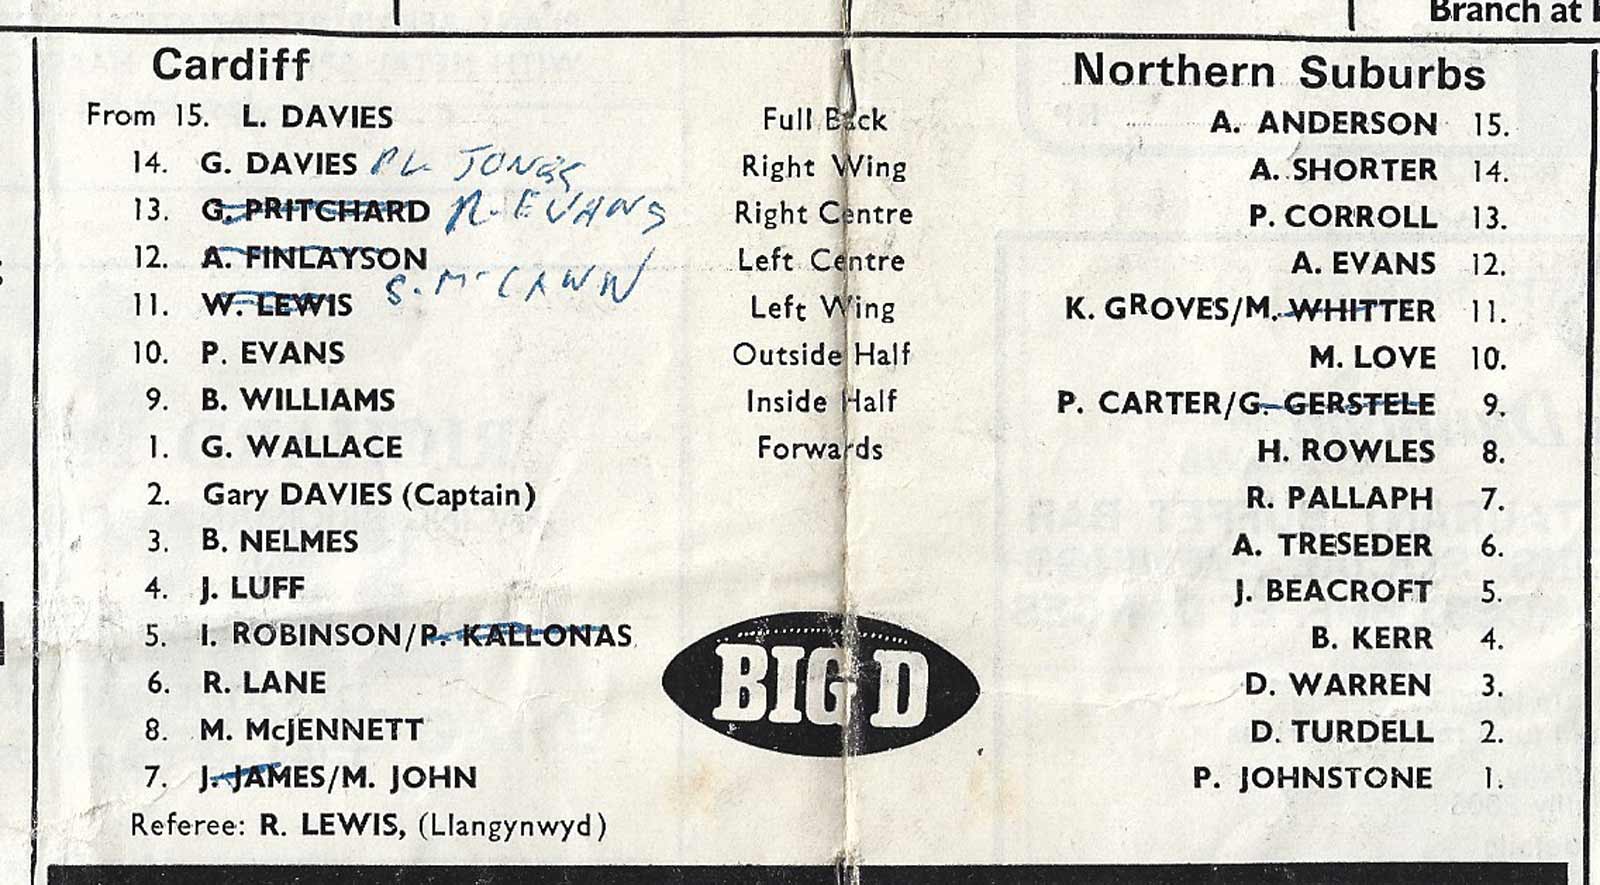 Branch at
Cardiff Northern Suburbs
From 15. L. DAVIES Full Back A. ANDERSON 15.
14. G. DAVIES JONES Right Wing A. SHORTER 14.
13. G. PRITCHARD R. EVANS Right Centre P. CORROLL 13.
12. A. FINLAYSON Left Centre A. EVANS 12.
S. McCANN
11. W. LEWIS Left Wing K. GROVES/M. WHITTER 11.
10. P. EVANS Outside Half M. LOVE 10.
9. B. WILLIAMS Inside Half P. CARTER/G. GERSTELE 9.
1. G. WALLACE Forwards H. ROWLES 8.
2. Gary DAVIES (Captain) R. PALLAPH 7.
3. B. NELMES A. TRESEDER 6.
4. J. LUFF J. BEACROFT 5.
5. I. ROBINSON/P. KALLONAS B. KERR 4.
6. R. LANE D. WARREN 3.
BIG D
8. M. McJENNETT D. TURDELL 2.
7. J. JAMES/M. JOHN P. JOHNSTONE 1.
Referee: R. LEWIS, (Llangynwyd)